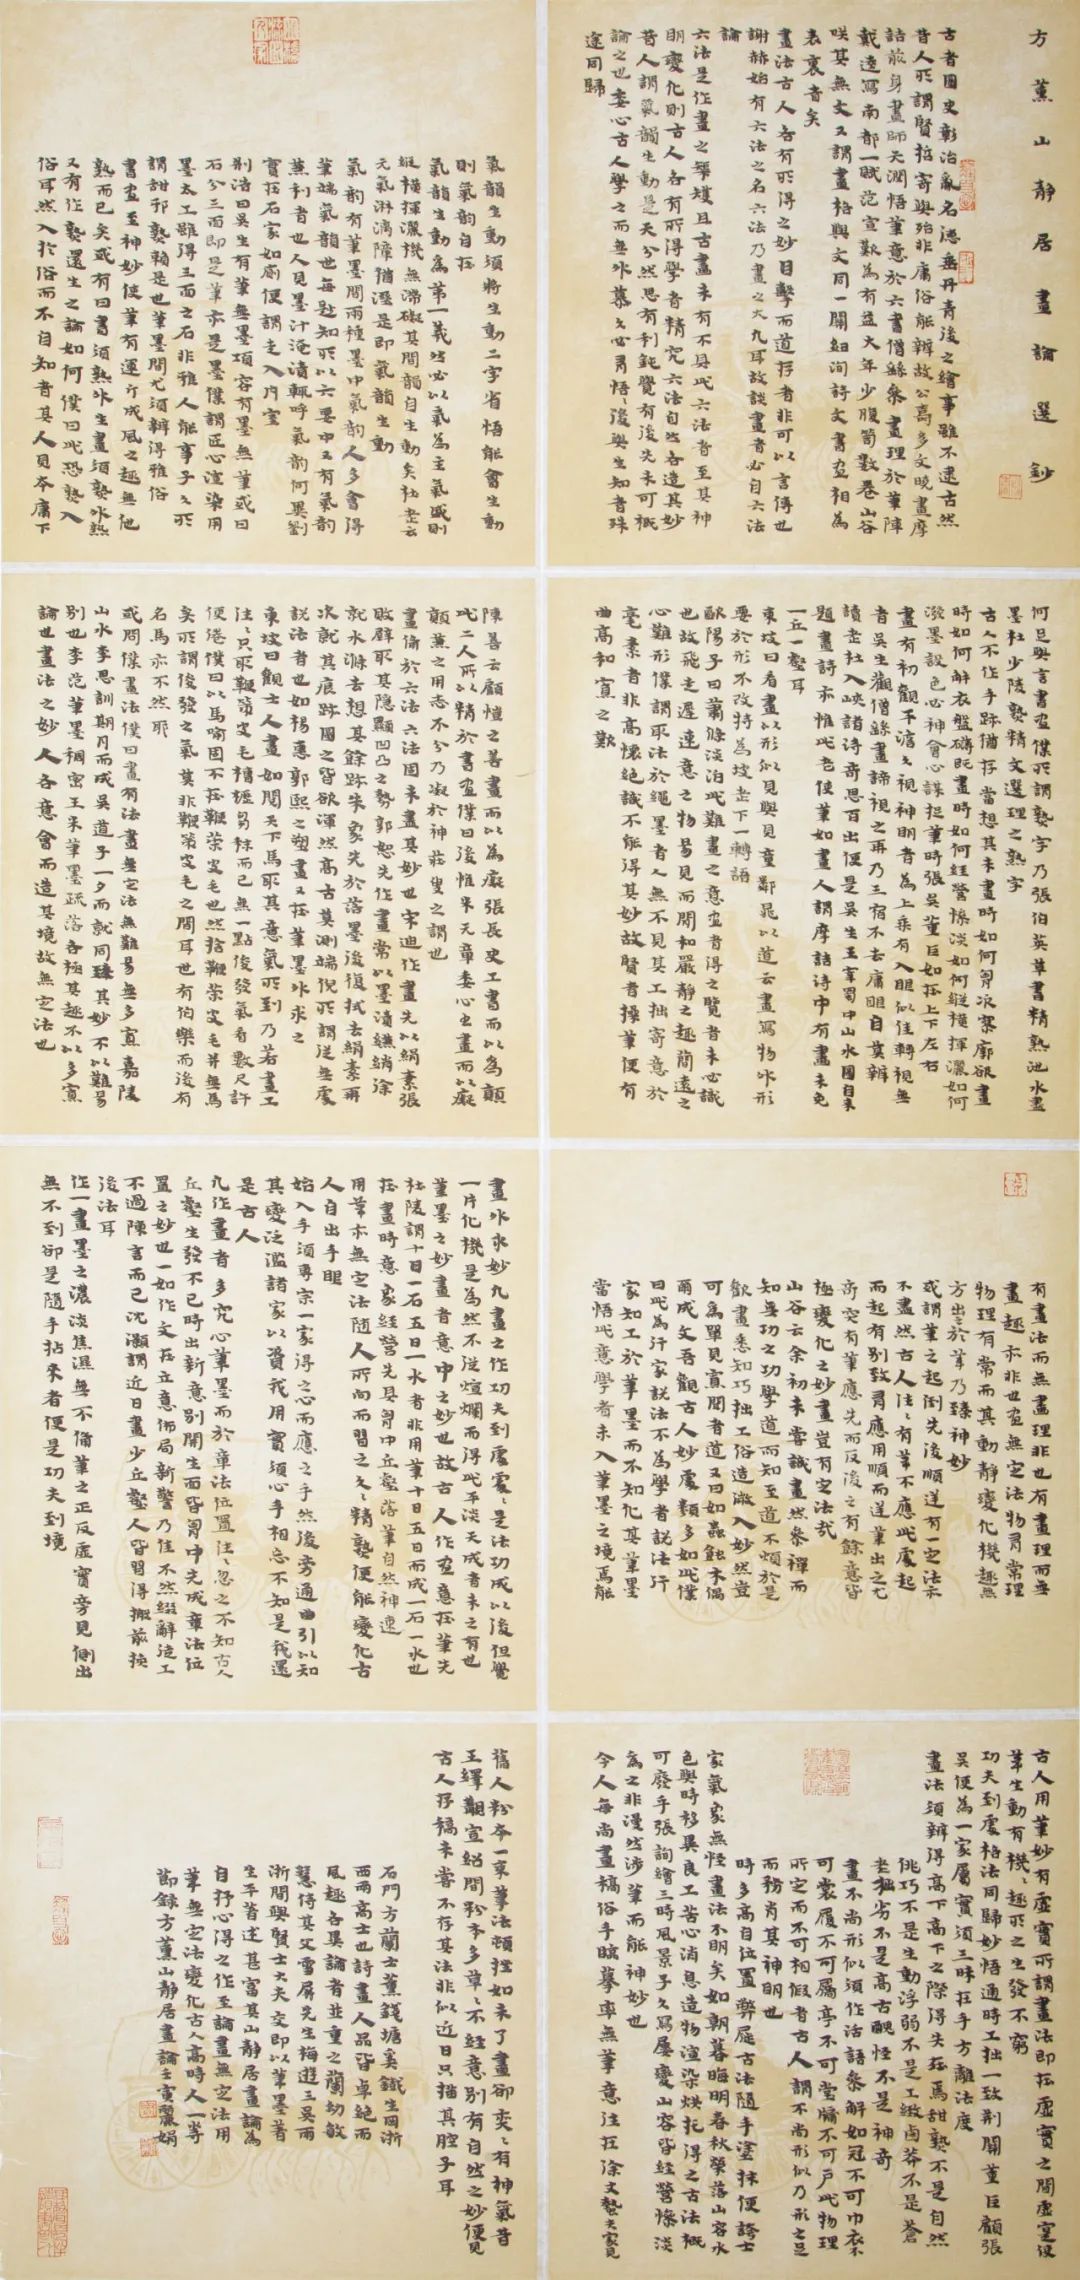 方薰山靜居畫論選鈔
古者圖史彰治亂名德垂丹青後之繪事雖不逮古然
昔人所謂賢哲寄興殆非庸俗能辨故公壽多文曉畫摩
詰前身畫師天潤悟筆意於六書僧繇參畫理於筆陣
戴逵寫南都一賦范宣歎為有益大年少腹笥數卷山谷
咲其無文又謂畫格與文同一關紐洵詩文書畫相為
表裏者矣
畫法古人各有所得之妙目擊而道存者非可以言傳也
謝赫始有六法之名六法乃畫之大凡耳故談畫者必自六法
論
六法是作畫之榘矱且古畫未有不具此六法者至其神
明變化則古人各有所得學者精究六法自然各造其妙
昔人謂氣韻生動是天分然思有利鈍覺有後先未可概
論之也委心古人學之而無外慕久必有悟悟後與生知者殊
途同歸
氣韻生動須將生動二字省悟能會生動
則氣韵自在
氣韻生動為第一義然必以氣為主氣盛則
縱橫揮灑機無滯礙其間韻自生動矣杜老云
元氣淋漓障猶溼是即氣韻生動
氣韵有筆墨間兩種墨中氣韵人多會得
筆端氣韻世每尠知所以六要中又有氣韵
兼利者也人見墨汁淹漬輒呼氣韵何異劉
實在石家如廁便謂走入內室
荊浩曰吳生有筆無墨項容有墨無筆或曰
石分三面即是筆亦是墨僕謂匠心渲染用
墨太工雖得三面之石非雅人能事子久所
謂甜邪熟賴是也筆墨間尤須辨得雅俗
書畫至神妙使筆有運斤成風之趣無他
熟而已矣或有曰書須熟外生畫須熟外熟
又有作熟還生之論如何僕曰此恐熟入
俗耳然入於俗而不自知者其人見本庸下
何足與言書畫僕所謂熟字乃張伯英草書精熟池水盡
墨杜少陵熟精文選理之熟字
古人不作手跡猶存當想其未畫時如何胷次寥廓欲畫
時如何解衣盤礴既畫時如何經營慘淡如何縱橫揮灑如何
潑墨設色必神會心謀捉筆時張吳董巨如在上下左右
畫有初觀平澹久視神明者為上乘有入眼似佳轉視無
者吳生觀僧繇畫諦視之再乃三宿不去庸眼自莫辨
讀老杜入峽諸詩奇思百出便是吳生王宰蜀中山水圖自來
題畫詩亦惟此老使筆如畫人謂摩詰詩中有畫未免
一丘一壑耳
東坡曰看畫以形似見與兒童鄰晁以道云畫寫物外形
要於形不改特為坡老下一轉語
歐陽子曰蕭條淡泊此難畫之意畫者得之覽者未必識
也故飛走遲速意之物易見而閒和嚴靜之趣簡遠之
心難形僕謂取法於繩墨者人無不見其工拙寄意於
毫素者非高懷絕識不能得其妙故賢者操筆便有
曲高和寡之歎
陳善云顧愷之善畫而以為癡張長史工書而以為顛
此二人所以精於書畫僕曰後惟米元章委心書畫而以癡
顛兼之用志不分乃凝於神莊叟之謂也
畫備於六法六法固未盡其妙也宋迪作畫先以絹素張
敗壁取其隱顯凹凸之勢郭恕先作畫常以墨漬縑綃徐
就水滌去想其餘跡朱象先於落墨後復拭去絹素再
次就其痕跡圖之皆欲渾然高古莫測端倪所謂從無處
說法者也如楊惠郭熙之塑畫又在筆墨外求之
東坡曰觀士人畫如閱天下馬取其意氣所到乃若畫工
往往只取鞭策皮毛槽櫪芻秣而已無一點俊發氣看數尺許
便倦僕曰以馬喻固不在鞭策皮毛也然捨鞭策皮毛并無馬
矣所謂俊發之氣莫非鞭策皮毛之間耳也有伯樂而後有
名馬亦不然耶
或問僕畫法僕曰畫有法畫無定法無難易無多寡嘉陵
山水李思訓期月而成吳道子一夕而就同臻其妙不以難易
別也李范筆墨稠密王米筆墨疏落各極其趣不以多寡
論也畫法之妙人各意會而造其境故無定法也
有畫法而無畫理非也有畫理而無
畫趣亦非也畫無定法物有常理
物理有常而其動靜變化機趣無
方出之於筆乃臻神妙
或謂筆之起倒先後順逆有一定法亦
不盡然古人往往有筆不應此處起
而起有別致有應用順而逆筆出之尤
奇突有筆應先而反後之有餘意皆
極變化之妙畫豈有定法哉
山谷云余初未嘗識畫然參禪而
知無功之功學道而知至道不煩於是
觀畫悉知巧拙工俗造微入妙然豈
可為單見寡聞者道又曰如蟲蝕木偶
爾成文吾觀古人妙處類多如此僕
曰此為行家說法不為學者說法行
家知工於筆墨而不知化其筆墨
當悟此意學者未入筆墨之境焉能
畫外求妙凡畫之作功夫到處處處是法功成以後但覺
一片化機是為然不從煊爛而得此平淡天成者未之有也
筆墨之妙畫者意中之妙也故古人作畫意在筆先
杜陵謂十日一石五日一水者非用筆十日五日而成一石一水也
在畫時意象經營先具胷中丘壑落筆自然神速
用筆亦無定法隨人所向而習之久久精熟便能變化古
人自出手眼
始入手須專宗一家得之心而應之手然後旁通曲引以知
其變泛濫諸家以資我用實須心手相忘不知是我還
是古人
凡作畫者多究心筆墨而於章法位置往往忽之不知古人
丘壑生發不已時出新意別開生面皆胷中先成章法位
置之妙也一如作文在立意佈局新警乃佳不然綴辭徒工
不過陳言而已沈灝謂近日畫少丘壑人皆習得搬前換
後法耳
作一畫墨之濃淡焦濕無不備筆之正反虛實旁見側出
無不到卻是隨手拈來者便是功夫到境
古人用筆妙有虛實所謂畫法即在虛實之間虛實使
筆生動有機機趣所之生發不窮
功夫到處格法同歸妙悟通時工拙一致荆關董巨顧張
吳便為一家屬實須三昧在手方離法度
畫法須辨得高下高下之際得失在焉甜熟不是自然
佻巧不是生動浮弱不是工緻鹵莽不是蒼
老拙劣不是高古醜怪不是神奇
畫不尚形似須作活語參解如冠不可巾衣不
可裳履不可屩亭不可堂牖不可戶此物理
所定而不可相假者古人謂不尚形似乃形之足
而務肖其神明也
時多高自位置弊屣古法隨手塗抹便誇士
家氣象無怪畫法不明矣如朝暮晦明春秋榮落山容水
色與時移異良工苦心消息造物渲染烘托得之古法概
可廢乎張詢繪三時風景子久寫屢變山容皆經營慘淡
為之非漫然涉筆而能神妙也
今人每尚畫稿俗手臨摹率無筆意往在徐丈蟄夫家見
舊人粉本一束筆法頓挫如未了畫卻奕奕有神氣昔
王繹覯宣紹間粉本多草草不經意別有自然之妙便見
古人存稿未嘗不存其法非似近日只描其腔子耳
石門方蘭士薰錢塘奚鐵生岡浙
西兩高士也詩畫人品皆卓絕而
風趣各異論者並重之蘭幼敏
慧侍其父雪屏先生梅遊三吳兩
浙間與賢士大夫交即以筆墨著
生平著述甚富其山靜居畫論為
自抒心得之作至論畫無定法用
筆無定法變化古人高時人一等
節錄方薰山靜居畫論壬寅麗娟